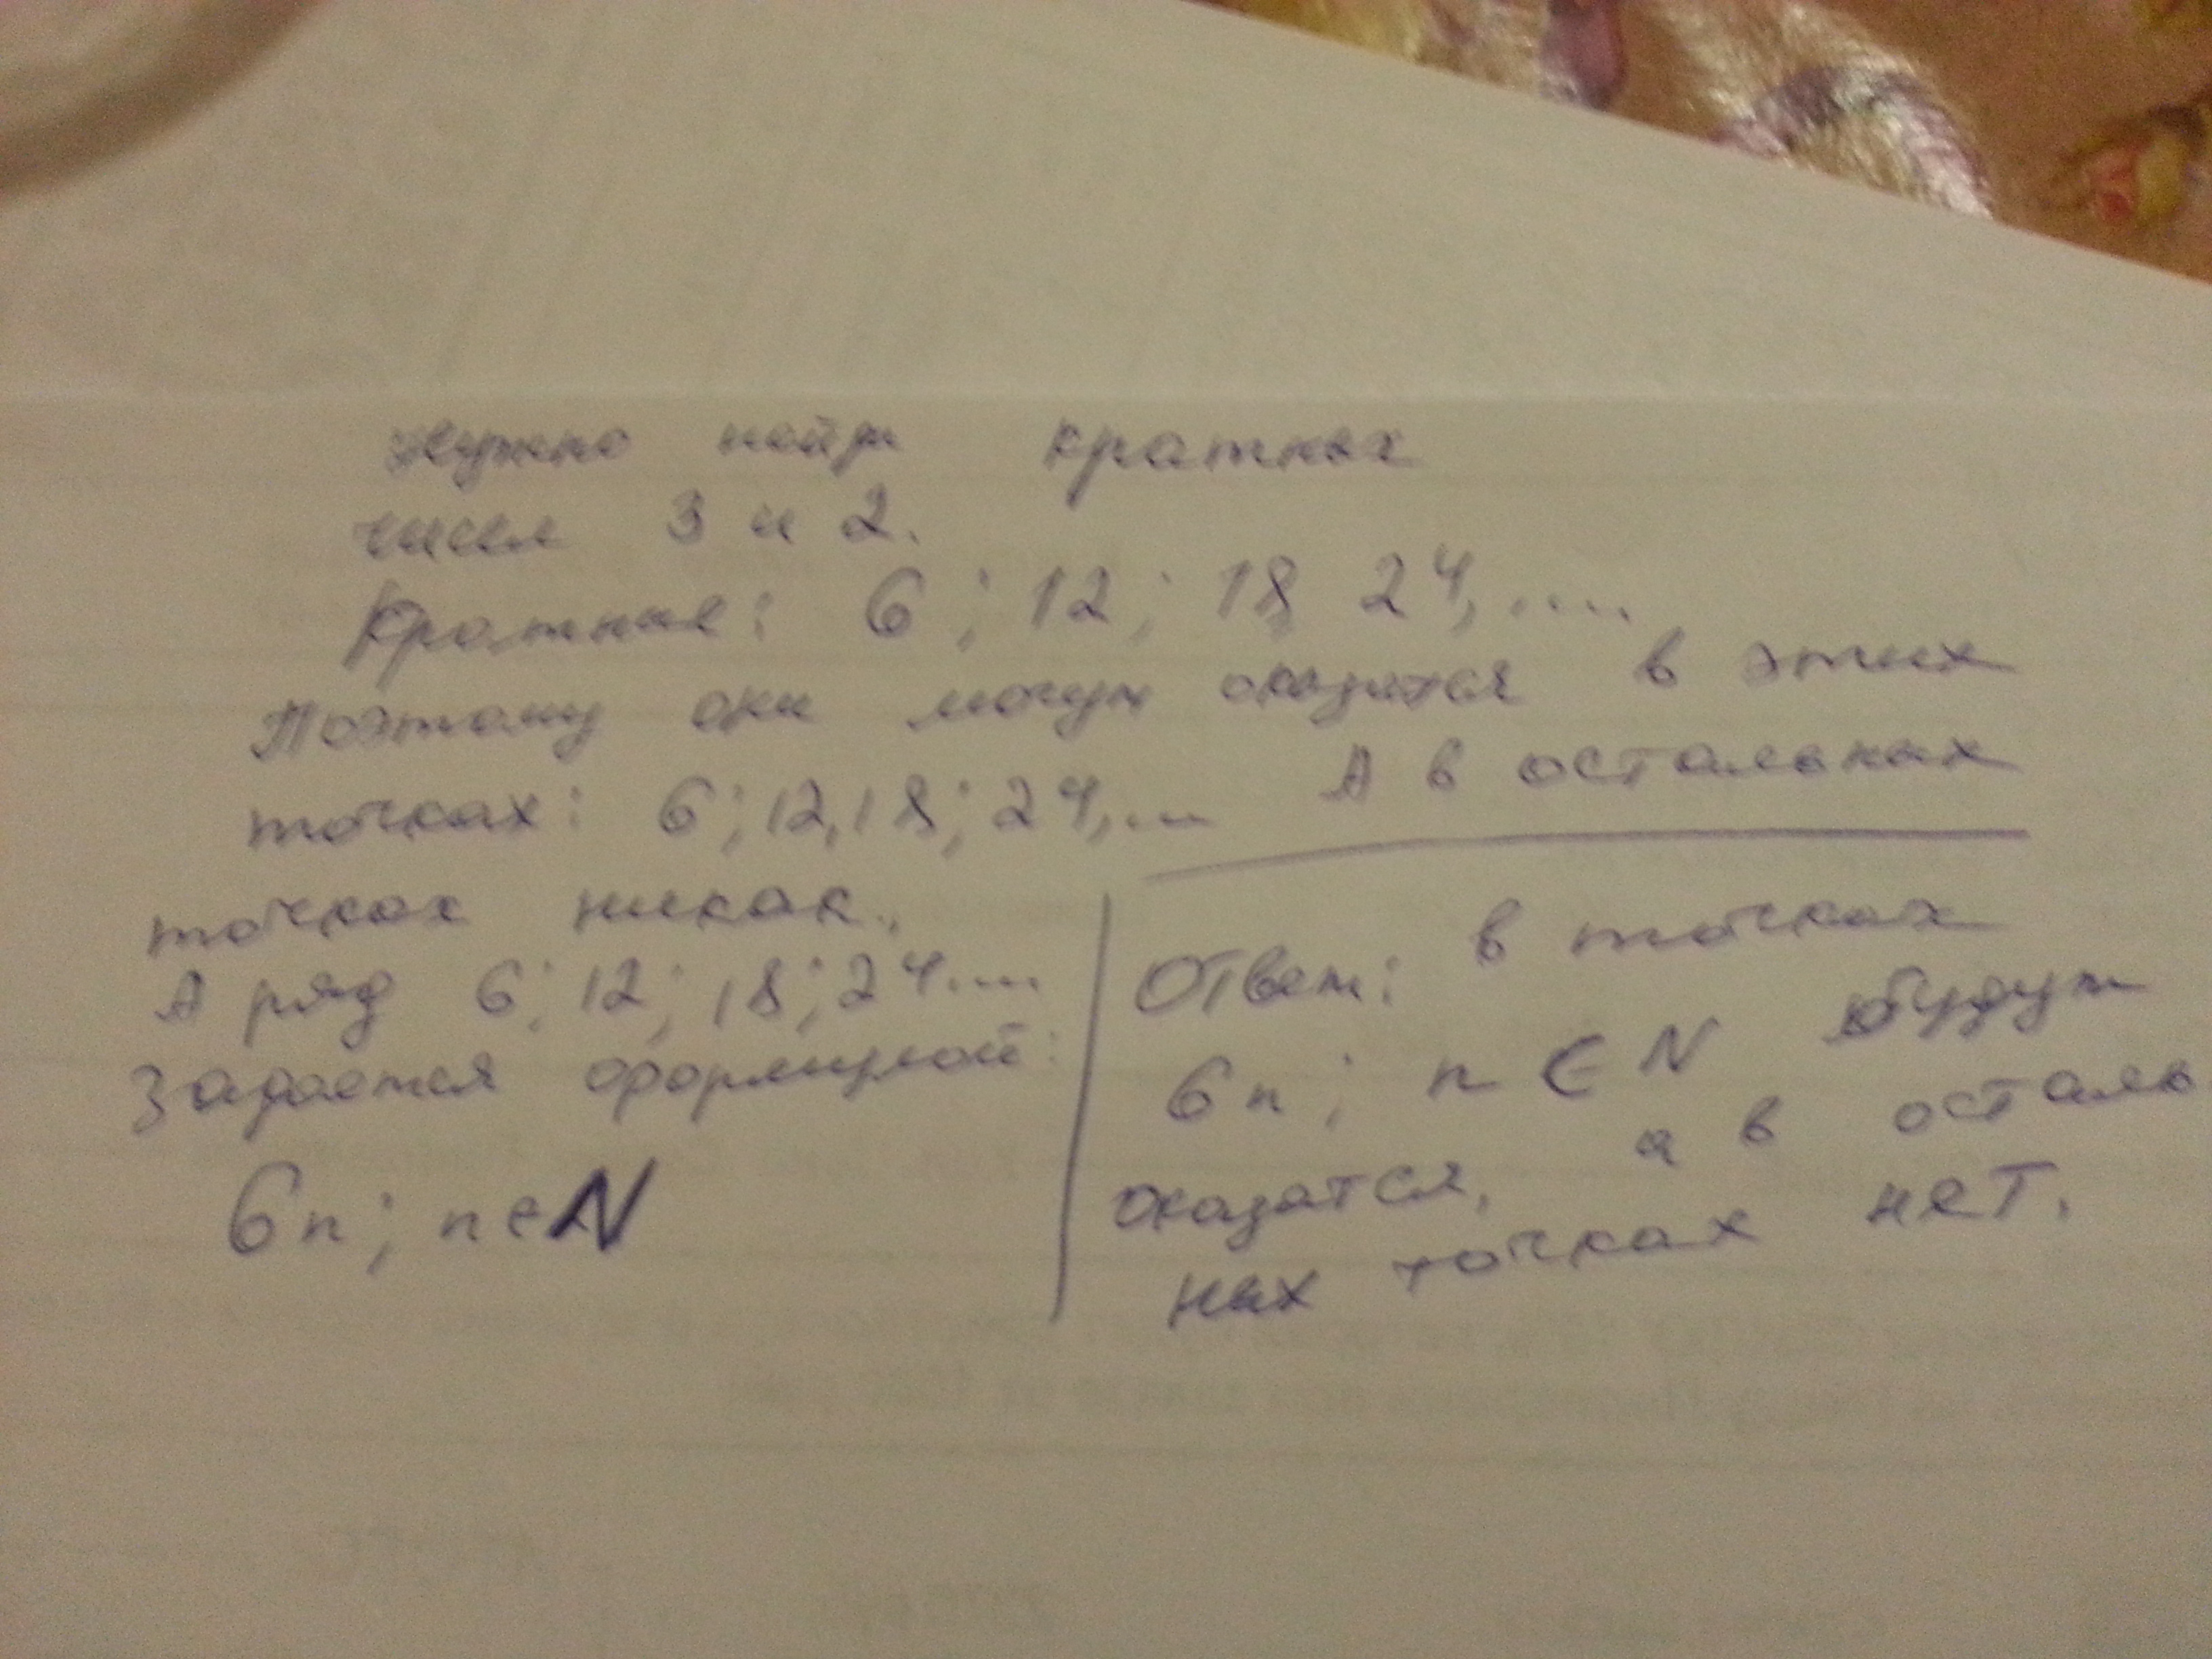 нужно найти кратных
чисел 3 и 2.
Кратные: 6; 12; 18, 24, ....
Поэтому они могут оказатся в этих
точках: 6; 12, 18; 24, ... А в остальных
точках никак.
А ряд 6; 12; 18; 24....
Задается формулой:
6n; n ∈ N
Ответ: в точках
6n; n ∈ N будут
оказатся, а в осталь
ных точках нет.